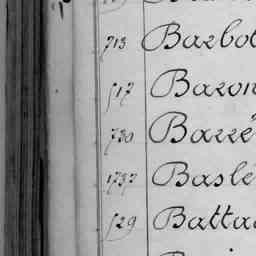 713 Barbot
517 Baron
730 Barré
1737 Baslé
529 Batta